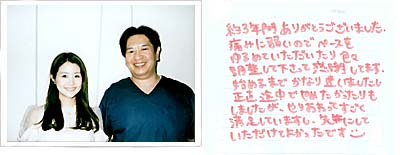 約3年間ありがとうございました。
痛みに弱いのでペースを
ゆるめていただいたり色々
調整して下さって感謝してます。
始めるまでかなり迷いましたし
正直途中でやめたかったりも
しましたが、やりおわってすごく
満足しています。矢澤にして
いただけてよかったです